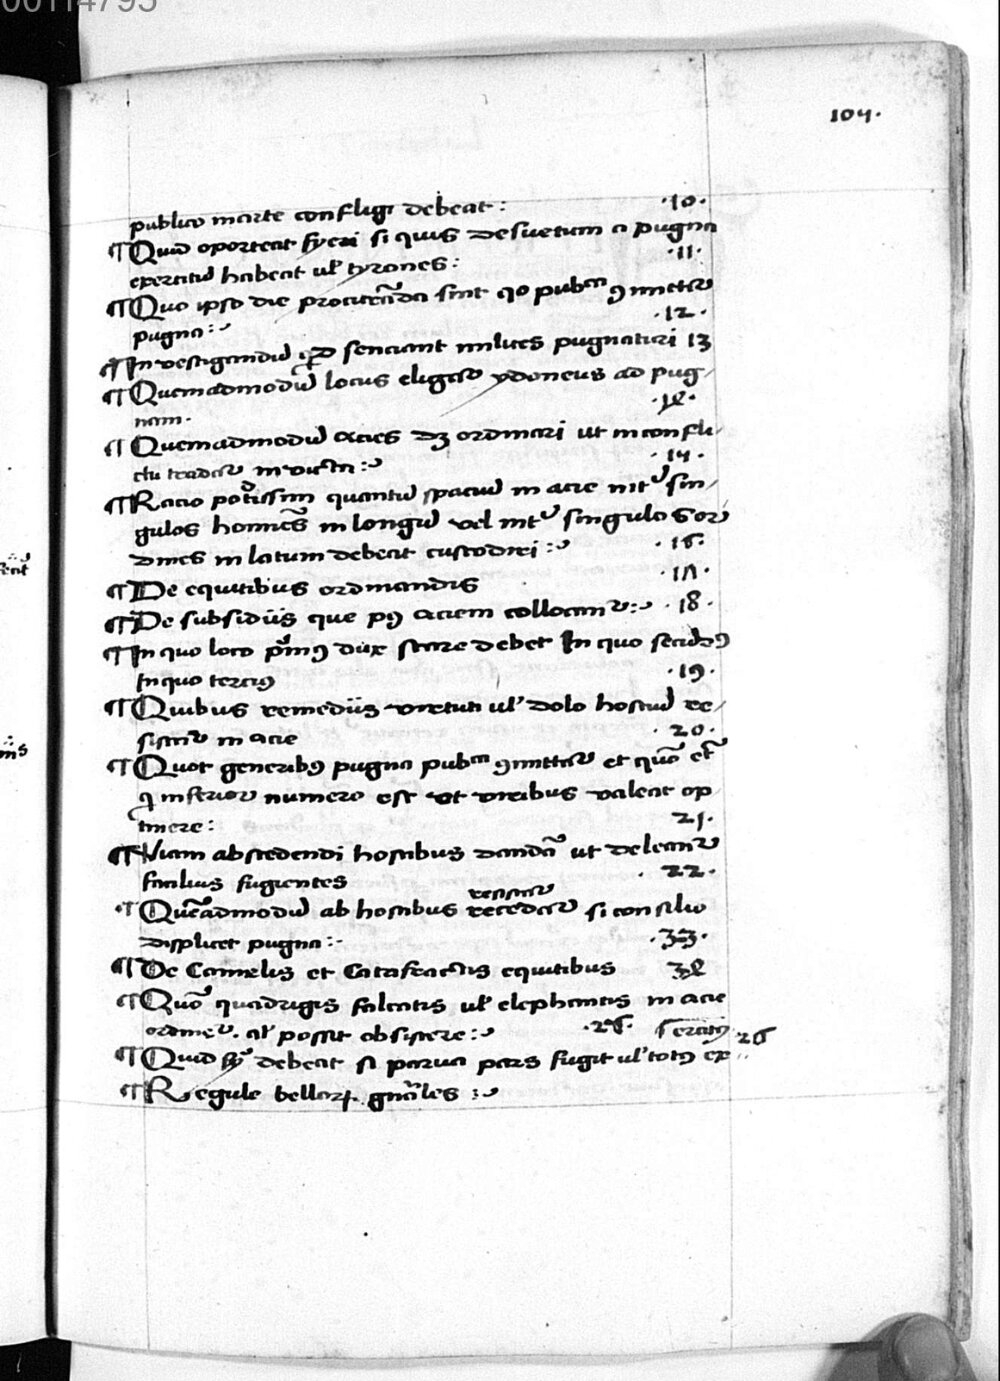 00114795
104.
publico marte confligi debeat : .10.
¶ Quid oporteat fyeri si quis desuetum a pugna
exercitū habeat ul' tyrones : .11.
¶ Quo ipso die proctrādā sint qo pubca 9mittetr
pugna : .12.
¶ In vestigandū qd senciant milites pugnaturi 13
¶ Quemadmodū locus eligatr ydoneus ad pug/
nam. .14.
¶ Quemadmodū acies dz ordinari ut in confli/
ctu reddatr invicta : .14.
¶ Racio potissim quantū spaciū in acie intr sin/
gulos homines in longū vel intr singulos or/
dines in latum debeat custodiri : .16.
¶ De equitibus ordinandis .17.
¶ De subsidiis que p9 aciem collocantr : .18.
¶ In quo loco prim9 dux stare debet In quo secūd9
In quo terci9 .19.
¶ Quibus remediis virtuti ul' dolo hostiū re/
sistatr in acie .20.
¶ Quot generib9 pugna pubca 9mittatr et quō etia
qi inferior numero est et viribus valeat op
tinere : 21.
¶ Viam abscedendi hostibus dandā ut deleantr
facilius fugientes .22.
resistatr
¶ Quēadmodū ab hostibus recedatr si consilio
displicet pugna : .33.
¶ De Camelis et Catafractis equitibus 34
¶ Quō quadrigis falcatis ul' elephantis in acie
obsistere : .26. sercitus 26
¶ Quid debeat si parva pars fugit ul' tot9 ex
¶ Regule bellorum gnāles :